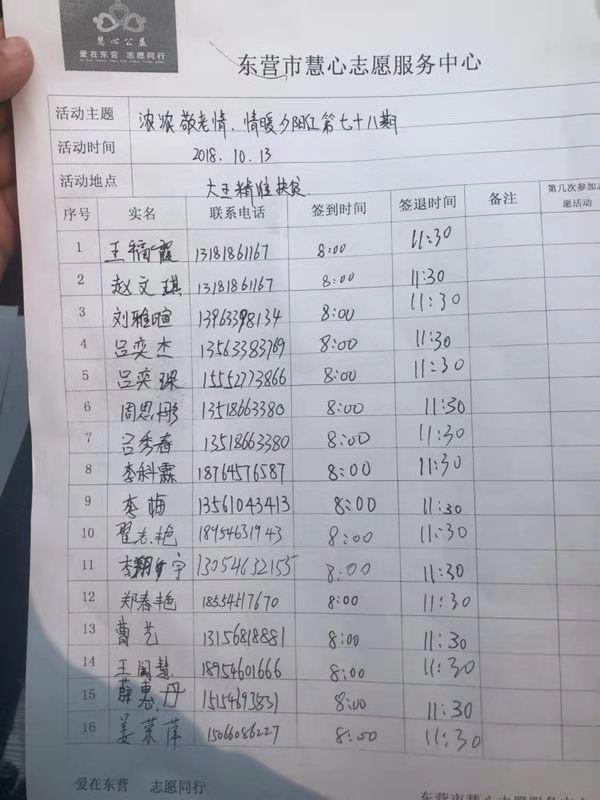 慧心公益
爱在东营 志愿同行
东营市慧心志愿服务中心
活动主题 浓浓敬老情,情暖夕阳红第七十八期
活动时间 2018.10.13
活动地点 大王精准扶贫
序号 实名 联系电话 签到时间 签退时间 备注 第几次参加志
愿活动
1 王 霞 13181861167 8:00 11:30
2 赵文琪 13181861167 8:00 11:30
3 刘雅暄 13963398134 8:00 11:30
4 吕奕杰 13563383769 8:00 11:30
5 吕奕琛 15552773866 8:00 11:30
6 周思彤 13518663380 8:00 11:30
7 吕秀春 13518663380 8:00 11:30
8 李科霖 18764576587 8:00 11:30
9 李梅 13561043413 8:00 11:30
10 翟志艳 18954631943 8:00 11:30
11 李翔宇 13054632155 8:00 11:30
12 郑春艳 18554517670 8:00 11:30
13 曹艺 13156818881 8:00 11:30
14 王国慧 18954601666 8:00 11:30
15 薛惠丹 15154695831 8:00 11:30
16 姜荣萍 15066086227 8:00 11:30
爱在东营 志愿同行
东营市慧心志愿服务中